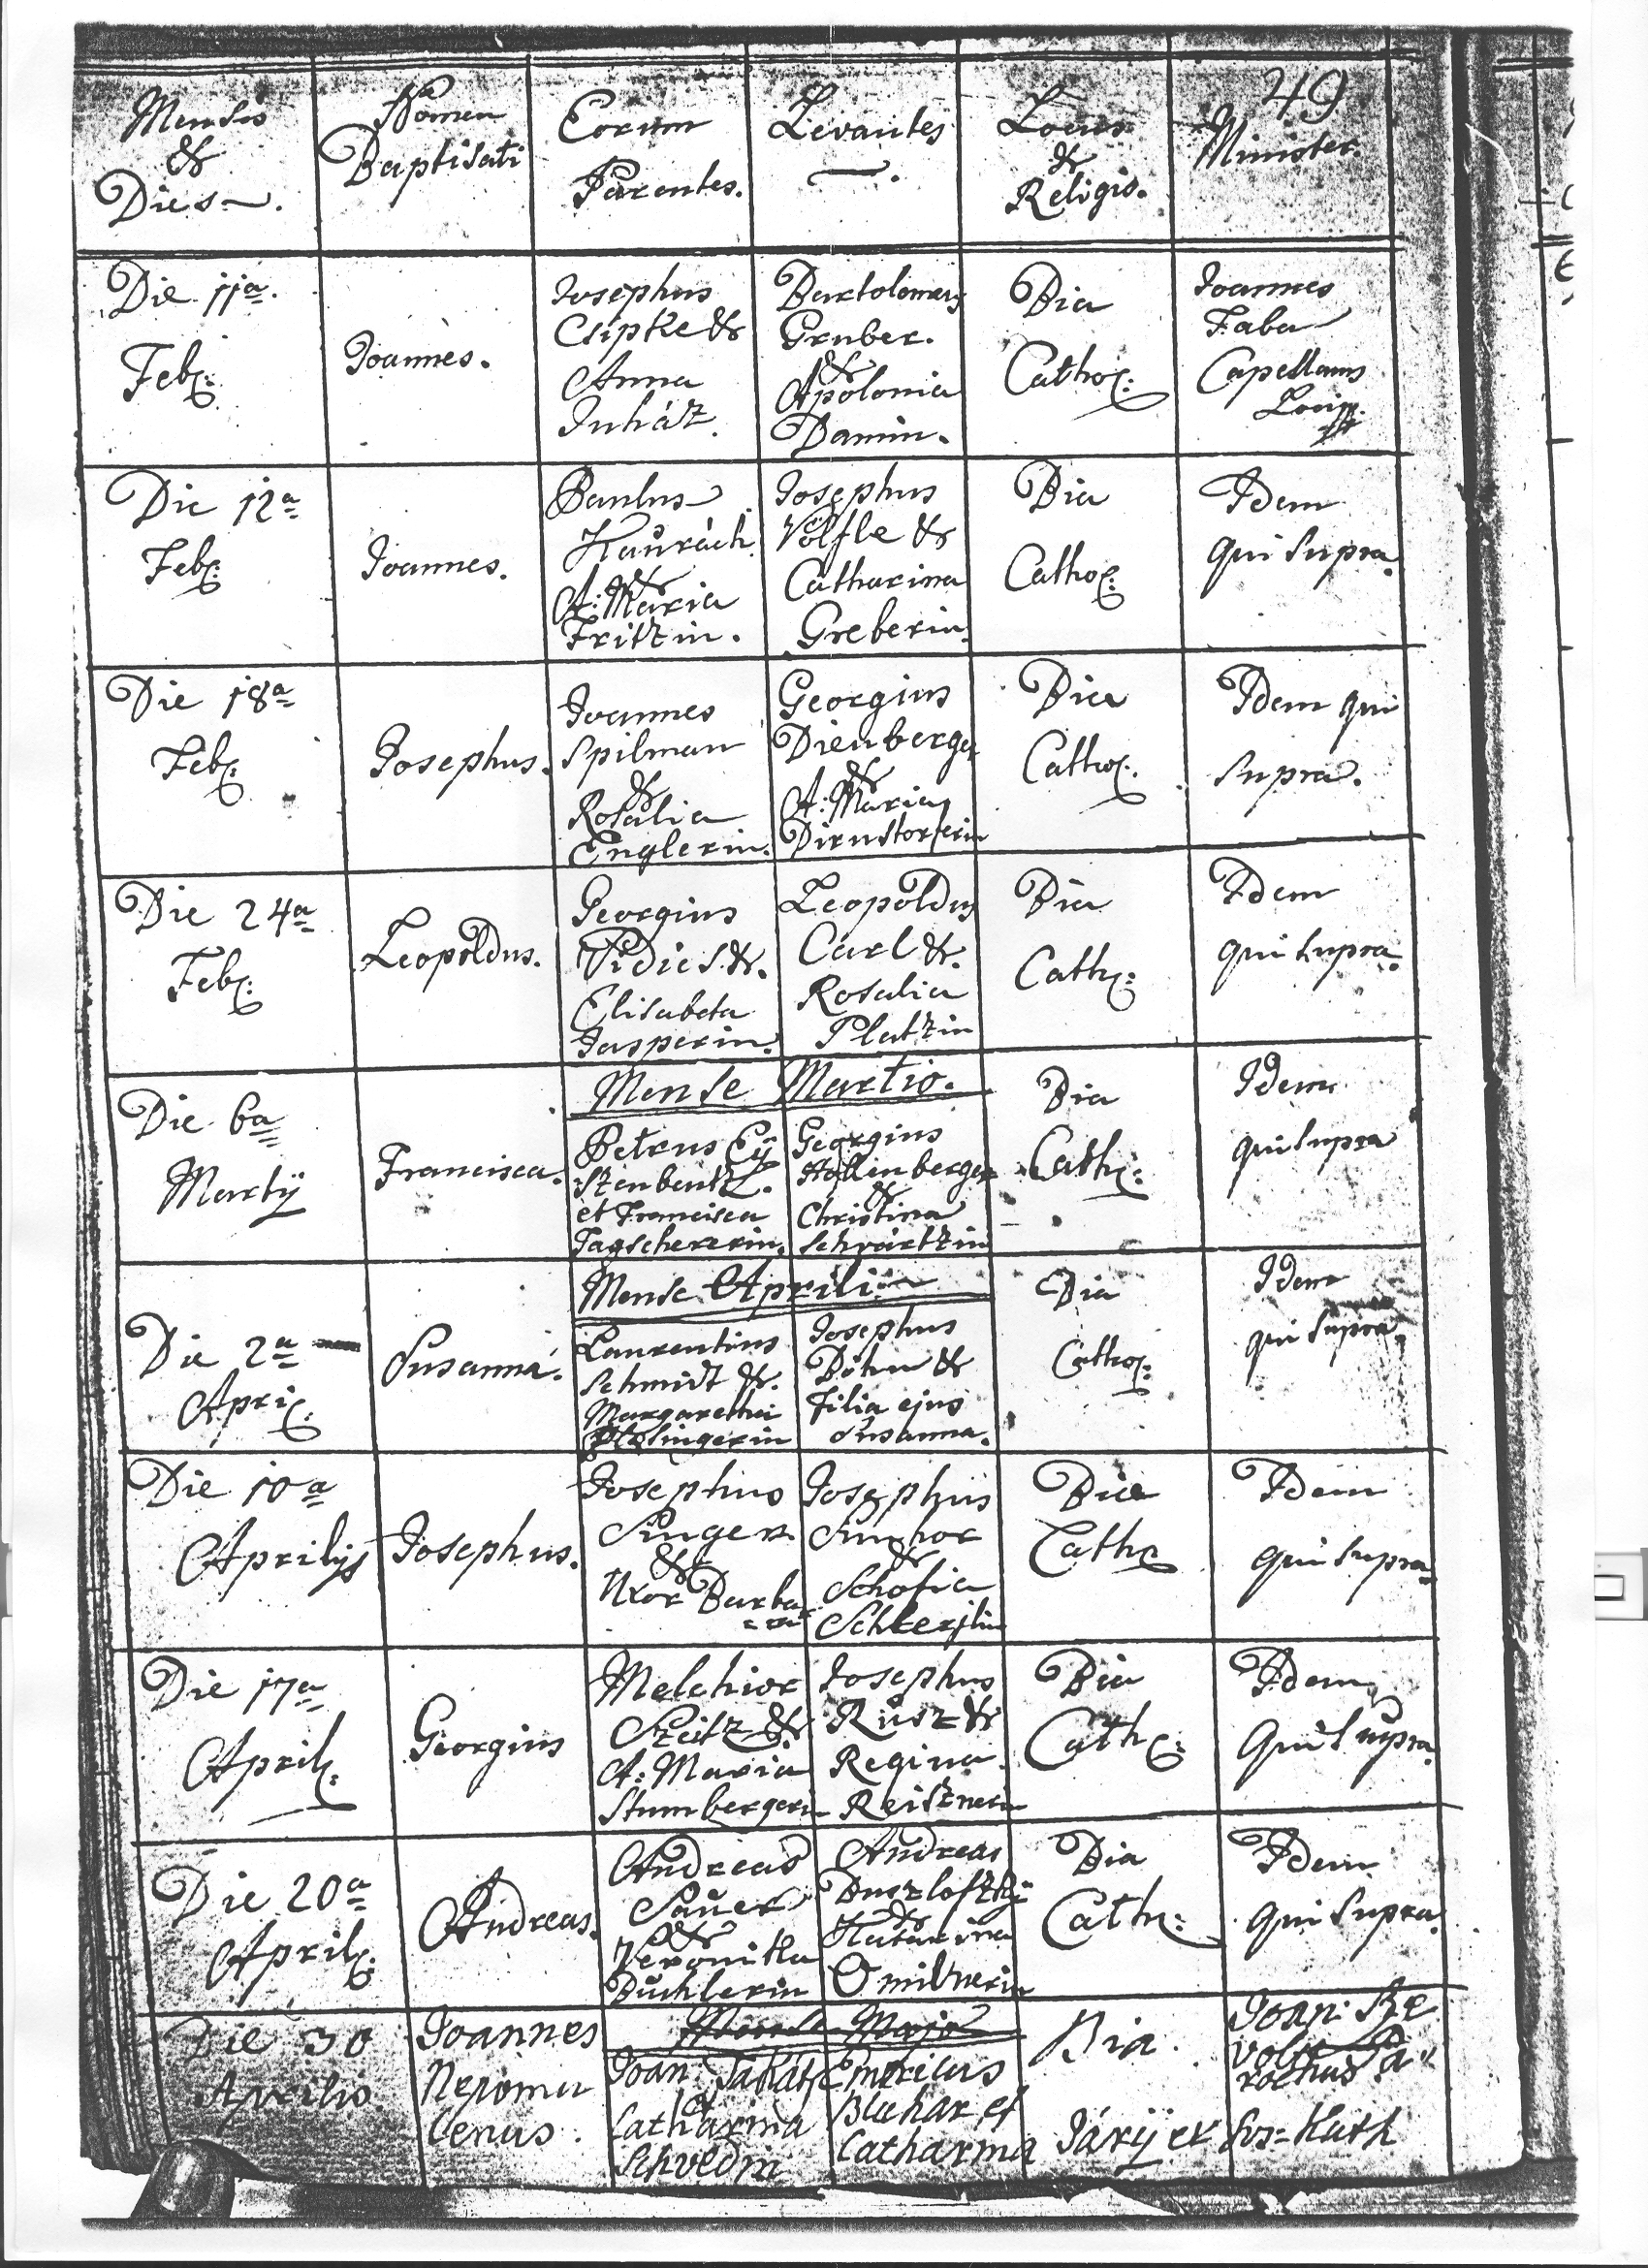 49
Mensis
&
Dies.
Nomen
Baptisati
Eorum
Parentes.
Levantes
Locus
&
Religio.
Minister.
Die 11a
Feb:
Joannes.
Josephus
Csipke &
Anna
Juház.
Bartolomeus
Gruber.
&
Apolonia
Damin.
Bia
Cathol:
Joannes
Faber
Capellanus
Loci
Die 12a
Feb:
Joannes.
Paulus
&
A: Maria
Fritzin.
Josephus
Völfle &
Catharina
Greberin.
Bia
Cathol:
Idem
qui supra.
Die 18a
Feb:
Josephus.
Joannes
Spilman
&
Rosalia
Englerin.
Georgius
Dienberger
&
A: Maria
Dirnstorferin
Bia
Cathol:
Idem qui
supra.
Die 24a
Feb:
Leopoldus.
Georgius
Vidics &.
Elisabeta
Jasperin.
Leopoldus
Carl &.
Rosalia
Platzin
Bia
Cath:
Idem
qui supra.
Mense Martio.
Die 6a
Martij
Francisca.
Petrus Ey
szenbentz.
et Francisca
Tagschererin.
Georgius
&
Christina
Schvartzin
Bia
Cath:
Idem
qui supra
Mense Aprili
Die 2a
April:
Susanna.
Laurentius
Schmidt &.
Margaretha
Josephus
Böhm &
filia ejus
Susanna.
Bia
Cathol:
Idem
qui supra.
Die 10a
Aprilys
Josephus.
Josephus
Singer
&
Uxor Barba
=ra
Josephus
&
Schofia
Bia
Cath
Idem
qui supra.
Die 17a
April:
Georgius
Melchior
Szeitz &
A: Maria
Stumbergerin
Josephus
Rusz &
Regina
Reisznerin
Bia
Cath:
Idem
qui supra.
Die 20a
April:
Andreas.
Andreas
Sauer
&
Veronika
Buchlerin
Andreas
&
Katarina
Bia
Cath:
Idem
qui supra.
Mense Majo
Die 30
Aprilis.
Joannes
Nepomu
cenus.
Joan: Takáts
et
Catharina
Schvedin
Emericus
Bluhar et
Catharina
Bia.
Joan: Sze